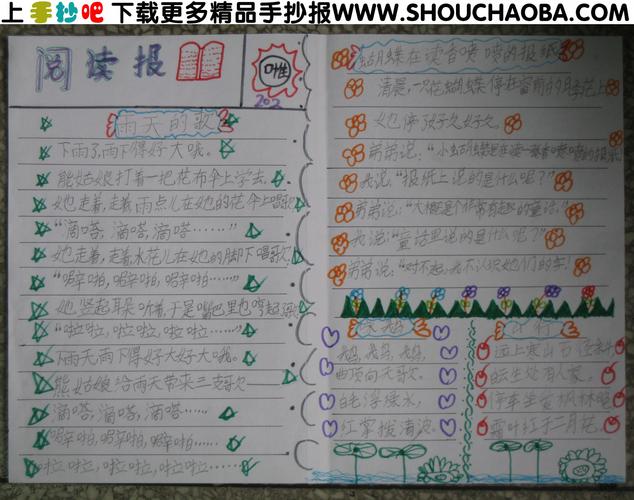 上手抄吧 下载更多精品手抄报WWW.SHOUCHAOBA.COM
阅读报
202
雨天的歌
下雨了,雨下得好大哦。
熊姑娘打着一把花布伞上学去。
她走着,走着,雨点儿在她的花伞上唱歌
“滴嗒,滴嗒,滴嗒……”
她走着,走着,水花儿在她的脚下唱歌
“啪,啪,啪……”
她竖起耳朵听着,于是嘴巴里也唱起歌
“啦啦,啦啦,啦啦……”
下雨天,雨下得好大好大哦。
熊姑娘给雨天带来三支歌——
滴嗒,滴嗒,滴嗒……
啪,啪,啪……
啦啦,啦啦,啦啦……
蝴蝶在读香喷喷的报纸
清晨,一只花蝴蝶停在窗前的月季花上
她停了好久好久。
弟弟说:“小蝴蝶是在读一张香喷喷的报纸
我说:“报纸上说的是什么呢?”
弟弟说:“大概是个非常有趣的童话。”
我说:“童话里说的是什么呢?”
弟弟说:“对不起,我不认识她们的字!
鹅,鹅,鹅,
曲项向天歌。
白毛浮绿水,
红掌拨清波。
山行
远上寒山石径斜
白云生处有人家。
停车坐爱枫林晚
霜叶红于二月花。